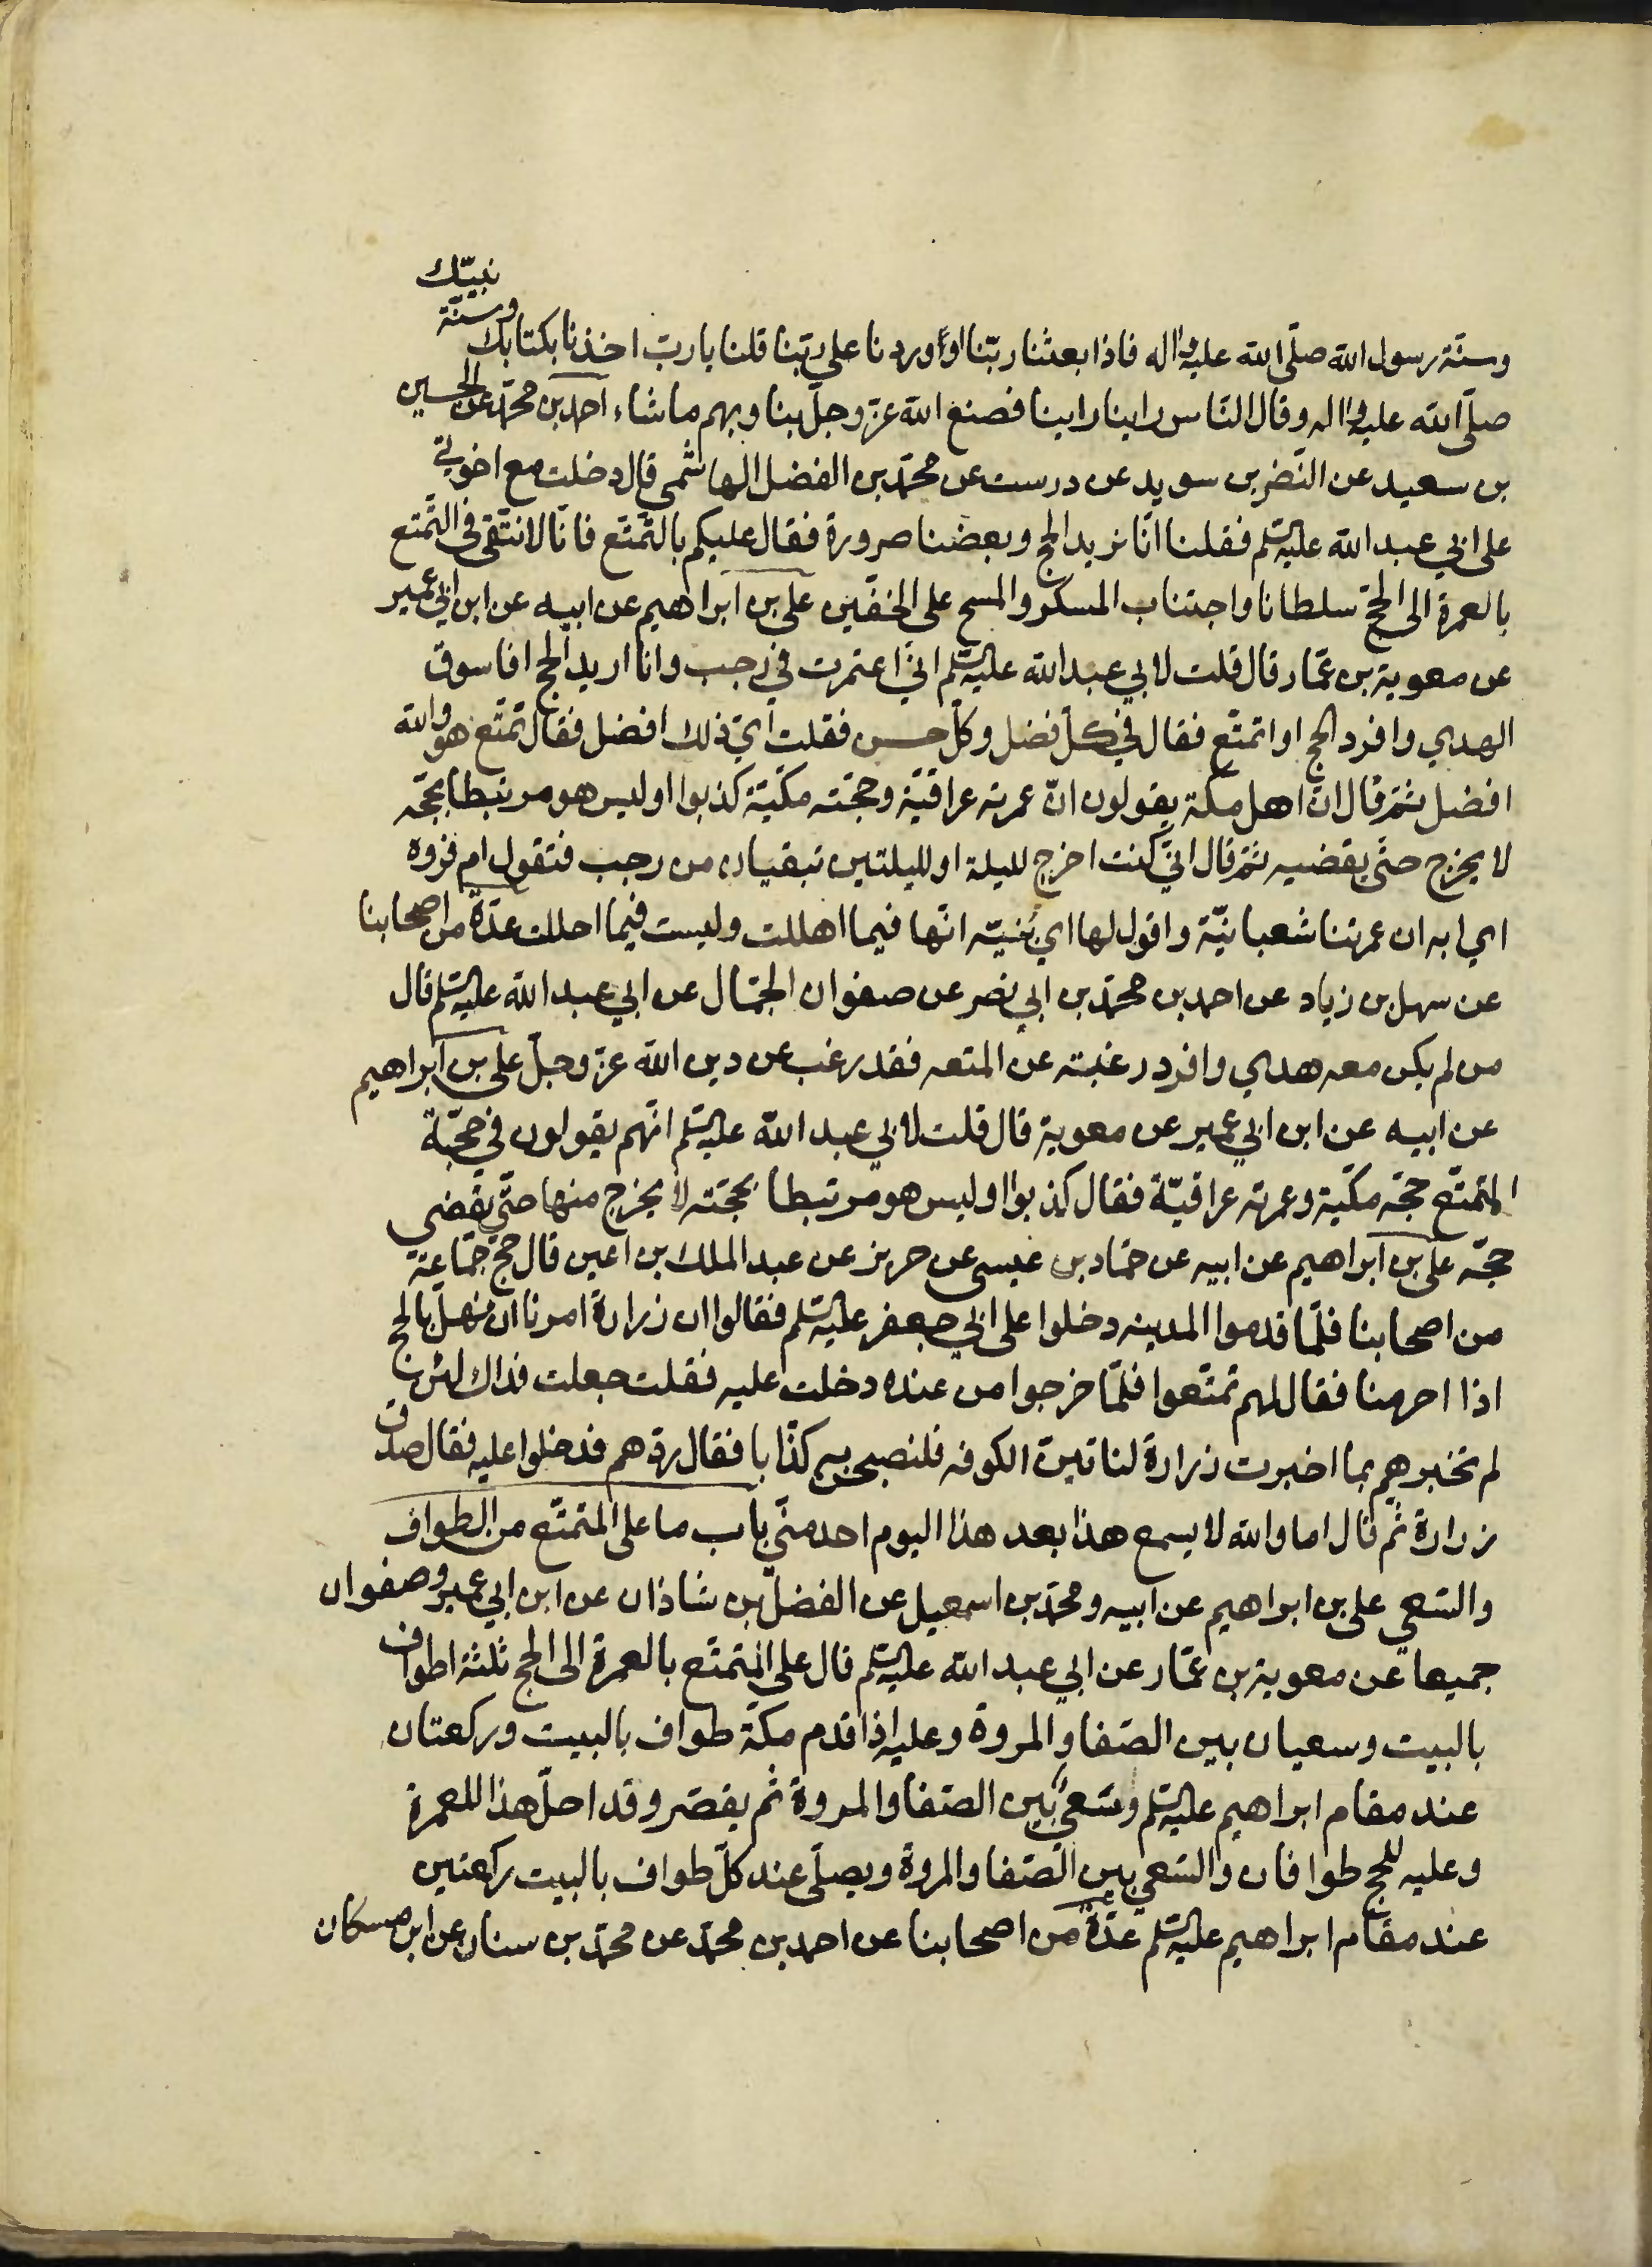 وسنّة رسول الله صلّى الله عليه واله فاذا بعثنا ربّنا او اوردنا على ربّنا قلنا يا ربّ اخذنا بكتابك وسنّة نبيّك
صلّى الله عليه واله وقال النّاس راينا راينا فصنع الله عزّ وجلّ بنا وبهم ما شاء احمد بن محمّد عن الحسين
بن سعيد عن النّضر بن سويد عن درست عن محمّد بن الفضل الهاشمى قال دخلت مع اخوتي
على ابي عبد الله عليه السّلم فقلنا انّا نريد الحج وبعضنا صرورة فقال عليكم بالتّمتّع فانّا لا نتّقى في التّمتع
بالعمرة الى الحجّ سلطانا واجتناب المسكر والمسح على الخفّين على بن ابراهيم عن ابيه عن ابن ابي عمير
عن معوية بن عمّار قال قلت لابي عبد الله عليه السّلم انّي اعتمرت في رجب وانا اريد الحج افاسوق
الهدي وافرد الحج او اتمتّع فقال في كلّ فضل وكلّ حسن فقلت ايّ ذلك افضل فقال تمتّع هو والله
افضل ثمّ قال انّ اهل مكّة يقولون انّ عمرته عراقيّة وحجّته مكّيّة كذبوا اوليس هو مرتبطا بحجّه
لا يخرج حتّى يقضيه ثمّ قال انّي كنت اخرج لليلة او لليلتين تبقيان من رجب فتقول ام فروة
اي ابه ان عمرتنا شعبانيّة واقول لها اي بنيّة انّها فيما اهللت وليست فيما احللت عدّة من اصحابنا
عن سهل بن زياد عن احمد بن محمّد بن ابي نصر عن صفوان الجمّال عن ابي عبد الله عليه السّلم قال
من لم يكن معه هدي وافرد رغبته عن المتعه فقد رغب عن دين الله عزّ وجلّ على بن ابراهيم
عن ابيه عن ابن ابي عمير عن معوية قال قلت لابي عبد الله عليه السّلم انّهم يقولون في حجّة
المتمتّع حجّه مكّيّة وعمرته عراقيّة فقال كذبوا اوليس هو مرتبطا بحجّته لا يخرج منها حتّى يقضي
حجّه على بن ابراهيم عن ابيه عن حمّاد بن عيسى عن حريز عن عبد الملك بن اعين قال حجّ جماعة
من اصحابنا فلمّا قدموا المدينه دخلوا على ابي جعفر عليه السّلم فقالوا ان زرارة امرنا ان نهلّ بالحج
اذا احرمنا فقال لهم تمتّعوا فلمّا خرجوا من عنده دخلت عليه فقلت جعلت فداك لئن
لم تخبرهم بما اخبرت زرارة لناتينّ الكوفه فلنصبحن به كذّابا فقال ردّهم فدخلوا عليه فقال صدق
زرارة ثم قال اما والله لا يسمع هذا بعد هذا اليوم احد منّي باب ما على المتمتّع من الطواف
والسّعي على بن ابراهيم عن ابيه ومحمّد بن اسمعيل عن الفضل بن شاذان عن ابن ابي عمير وصفوان
جميعا عن معوية بن عمّار عن ابي عبد الله عليه السّلم قال على المتمتّع بالعمرة الى الحج ثلثة اطواف
بالبيت وسعيان بين الصّفا والمروة وعليه اذا قدم مكّة طواف بالبيت وركعتان
عند مقام ابراهيم عليه السّلم وسعي بين الصّفا والمروة ثم يقصّر وقد احلّ هذا للعمرة
وعليه للحج طوافان والسّعي بين الصّفا والمروة ويصلّى عند كلّ طواف بالبيت ركعتين
عند مقام ابراهيم عليه السّلم عدّة من اصحابنا عن احمد بن محمّد عن محمّد بن سنان عن ابن مسكان